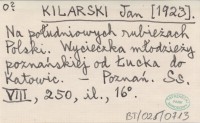 o?
KILARSKI Jan [1923].
Na południowych rubieżach
Polski. Wycieczka młodzieży
poznańskiej od Łucka do
Katowic. – Poznań. Ss.
VIII, 250, il., 16°.
BT/028/0713